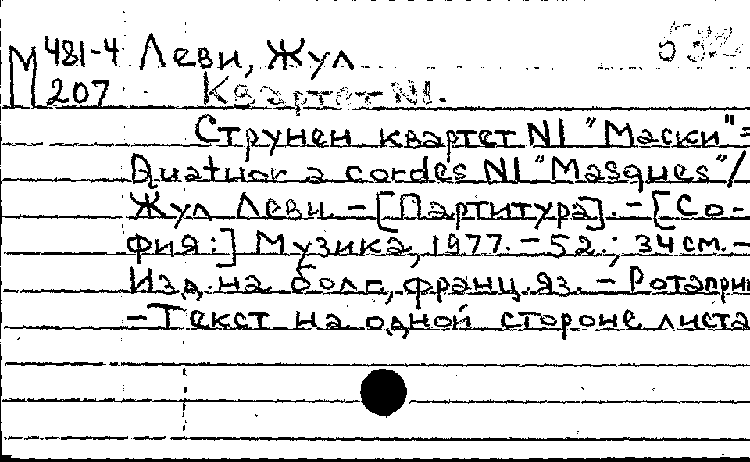 М 481-4 Леви, Жул 532
207 Квартет N1.
Струнен квартет N1 "Маски"=
Quatuor a cordes N1 "Masques"/
Жул Леви. - [Партитура]. - [Со-
фия:] Музика, 1977. - 52.; 34 см. -
Изд. на болг., франц. яз. - Ротапри
- Текст на одной стороне листа